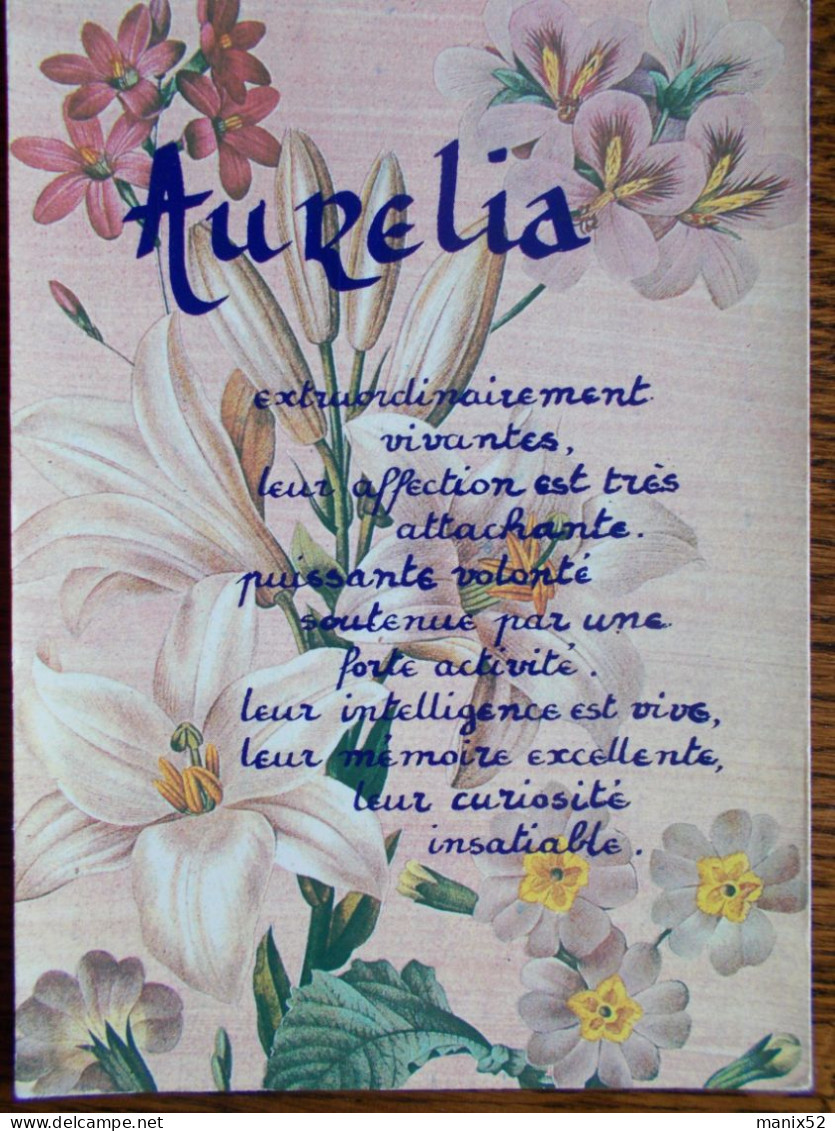 Aurelia
extraordinairement
vivantes,
leur affection est très
attachante.
puissante volonté
soutenue par une
forte activité.
leur intelligence est vive,
leur mémoire excellente,
leur curiosité
insatiable.
delcampe.net
manix52